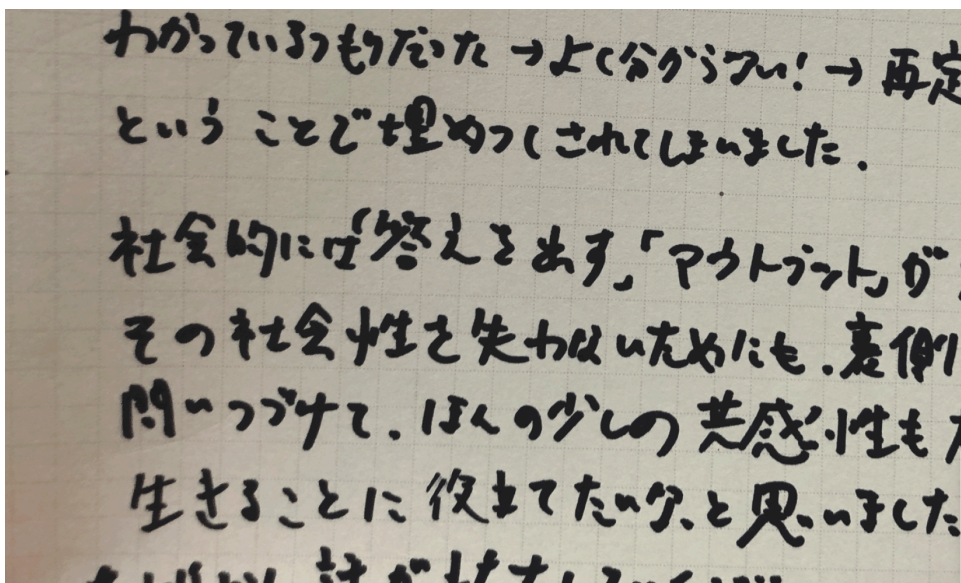 わかっているつもりだった→よく分からない!→再定
ということで埋めつくされてしまいました.
社会的には「答えを出す」「アウトプット」が
その社会性を失わないためにも.裏側
問いつづけて.ほんの少しの共感性も
生きることに役立てたいな、と思いました